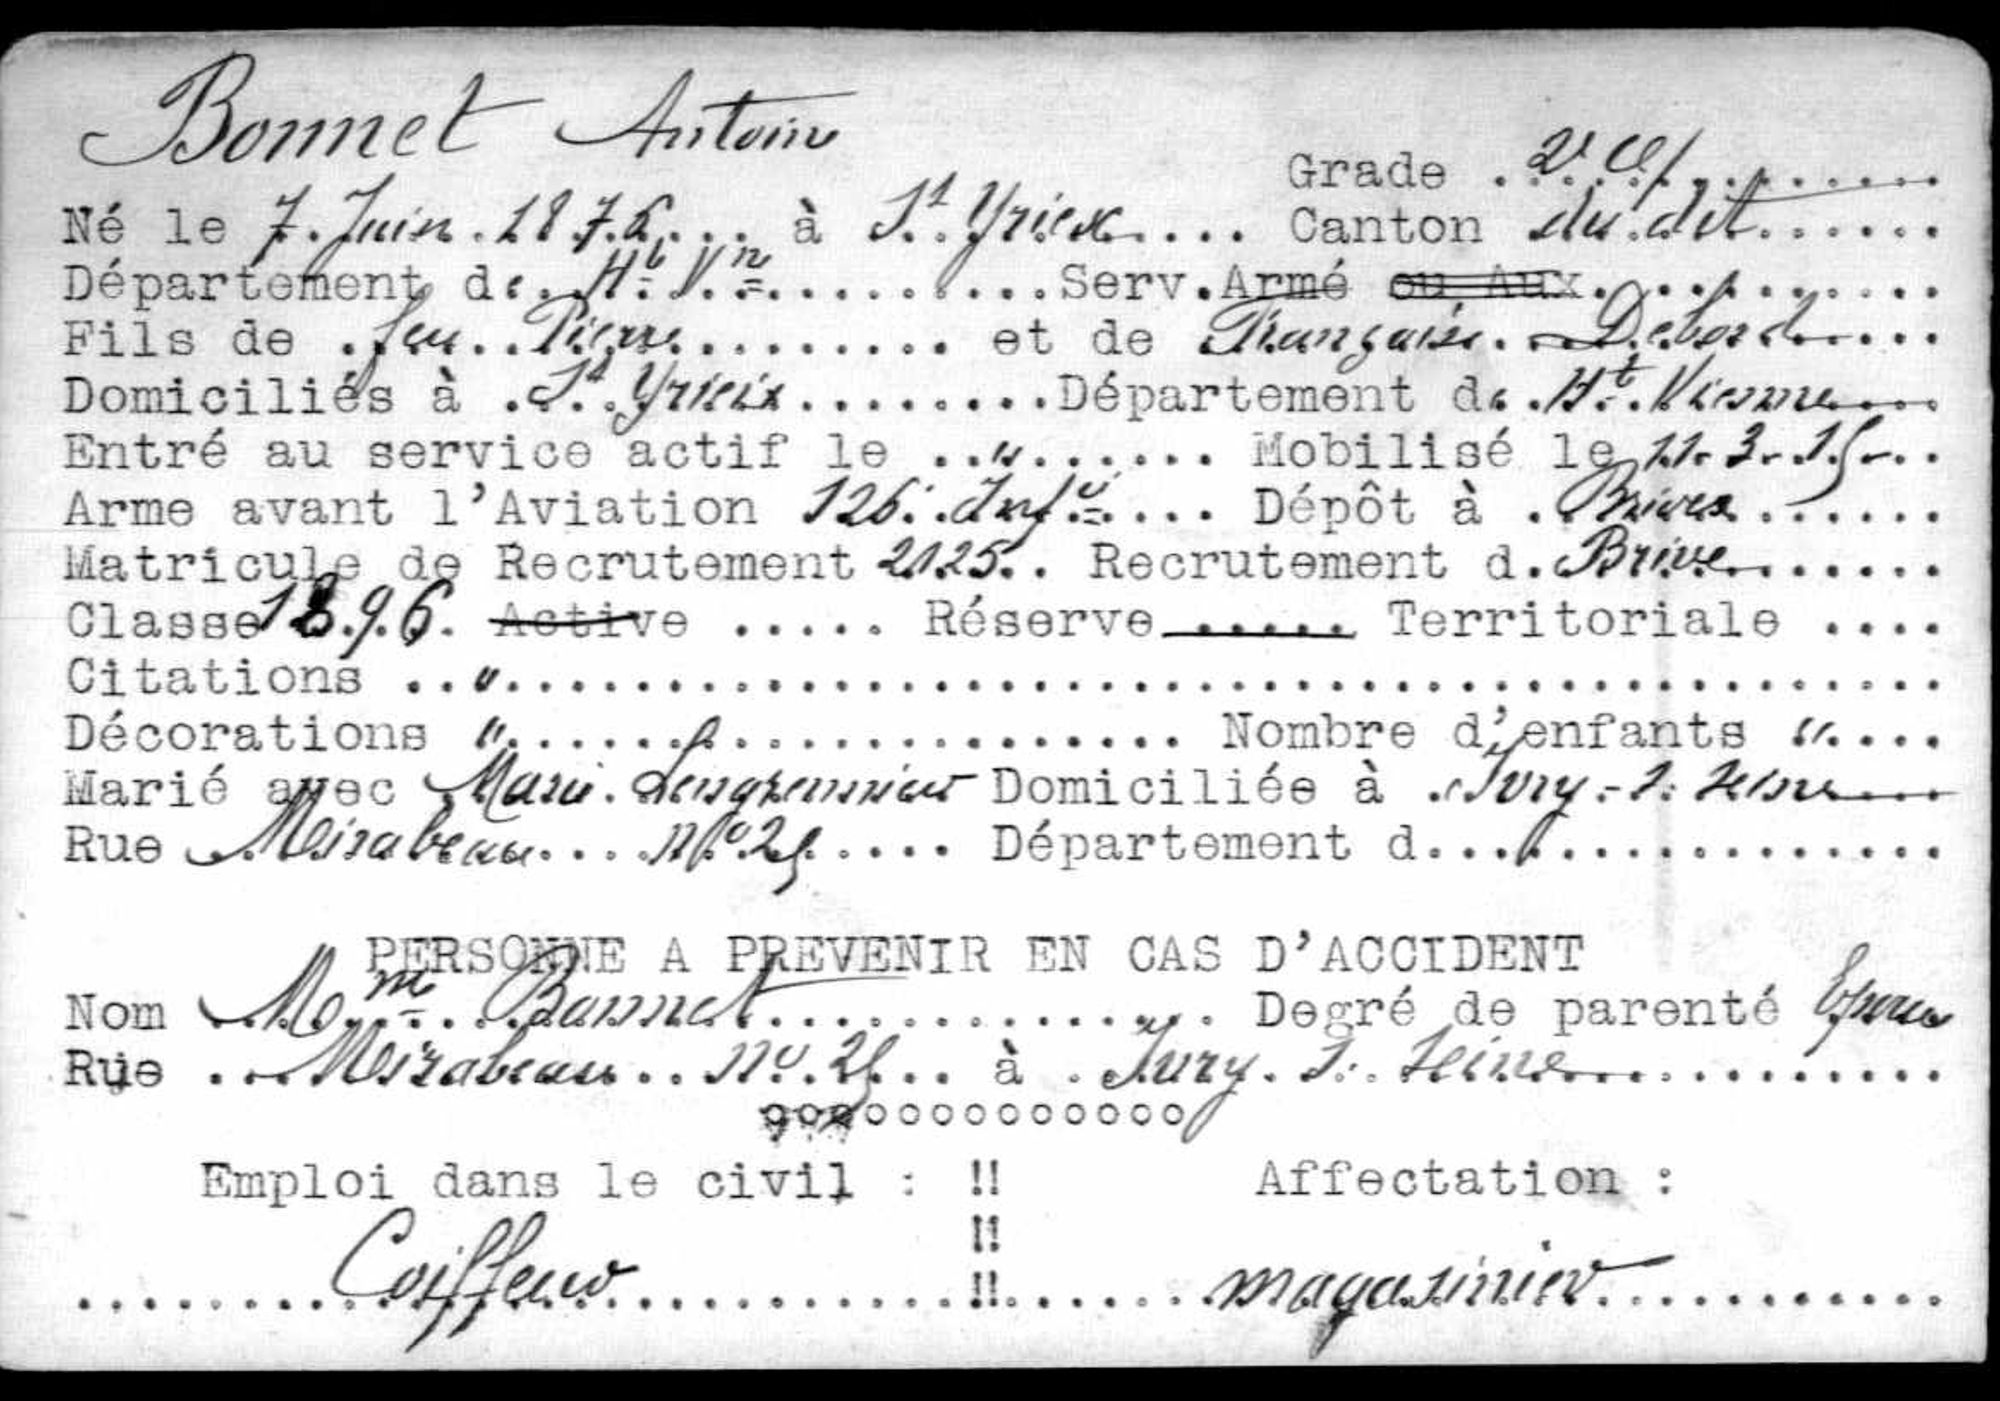 Bonnet Antoine
Grade . 2e Cl
Né le 7 Juin 1876 à St Yrieix Canton du dit
Département de Hte Vne Serv. Armé ou Aux
Fils de feu Pierre et de Françoise Debord
Domiciliés à St Yrieix Département de Hte Vienne
Entré au service actif le " Mobilisé le 11-3-15
Arme avant l'Aviation 126e Infie Dépôt à Brives
Matricule de Recrutement 2125 Recrutement d. Brive
Classe 1896 Active ..... Réserve ..... Territoriale ....
Citations "
Décorations " Nombre d'enfants "
Marié avec Marie Domiciliée à Ivry-s. Seine
Rue Mirabeau No 25 Département d.
PERSONNE A PREVENIR EN CAS D'ACCIDENT
Nom Mme Bonnet Degré de parenté Epouse
Rue Mirabeau No 25 à Ivry. s. Seine
ooooooooooooo
Emploi dans le civil : !! Affectation :
!!
Coiffeur !! magasinier